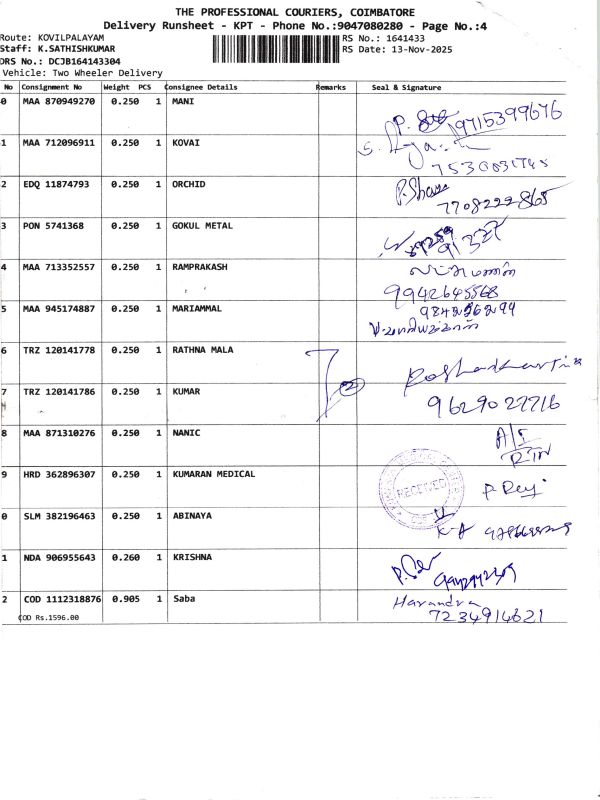 THE PROFESSIONAL COURIERS, COIMBATORE
Delivery Runsheet - KPT - Phone No.:9047080280 - Page No.:4
Route: KOVILPALAYAM RS No.: 1641433
Staff: K.SATHISHKUMAR RS Date: 13-Nov-2025
DRS No.: DCJB164143304
Vehicle: Two Wheeler Delivery
No Consignment No Weight PCS Consignee Details Remarks Seal & Signature
0 MAA 870949270 0.250 1 MANI
9715399676
1 MAA 712096911 0.250 1 KOVAI
2 EDQ 11874793 0.250 1 ORCHID
7708222865
3 PON 5741368 0.250 1 GOKUL METAL
4 MAA 713352557 0.250 1 RAMPRAKASH
9942645568
5 MAA 945174887 0.250 1 MARIAMMAL
6 TRZ 120141778 0.250 1 RATHNA MALA
7 TRZ 120141786 0.250 1 KUMAR
2
9629027716
8 MAA 871310276 0.250 1 NANIC
RTN
9 HRD 362896307 0.250 1 KUMARAN MEDICAL
RECEIVED
0 SLM 382196463 0.250 1 ABINAYA
1 NDA 906955643 0.260 1 KRISHNA
2 COD 1112318876 0.905 1 Saba
COD Rs.1596.00
7234914621